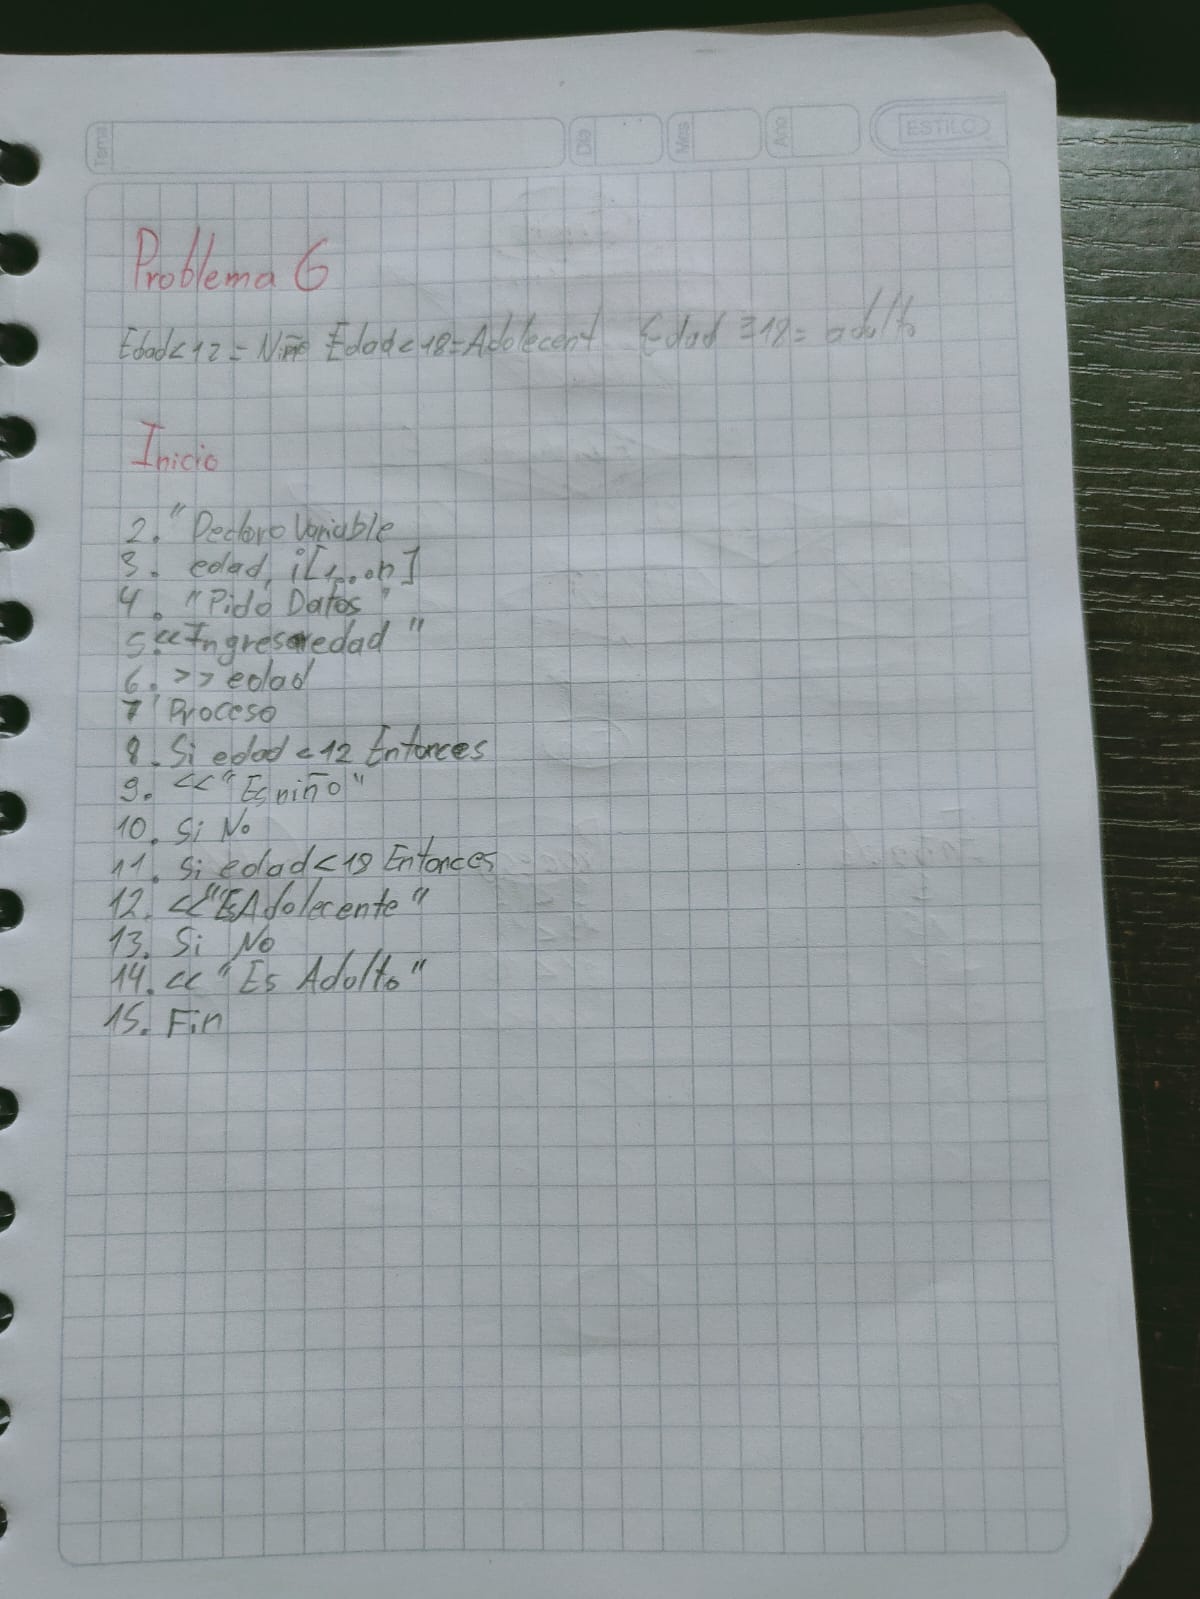 Tema
Día
Mes
Año
ESTILO
Problema 6
Edad<12 = Niño Edad<18=Adolecent Edad ≥18= adulto
Inicio
2. " Declaro Variable
3. edad, i[1...n]
4. "Pido Datos"
5. <<Ingresar edad "
6. >> edad
7 " Proceso
8. Si edad < 12 Entonces
9. << "Es niño"
10. Si No
11. Si edad < 18 Entonces
12. <<"Es Adolecente"
13. Si No
14. << "Es Adulto"
15. Fin